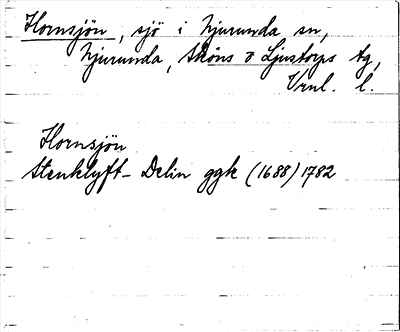 Hornsjön, sjö i Njurunda sn,
Njurunda, Sköns o Ljustorps tg,
Vrnl. l.
Hornsjön
Stenklyft - Delin ggk (1688) 1782